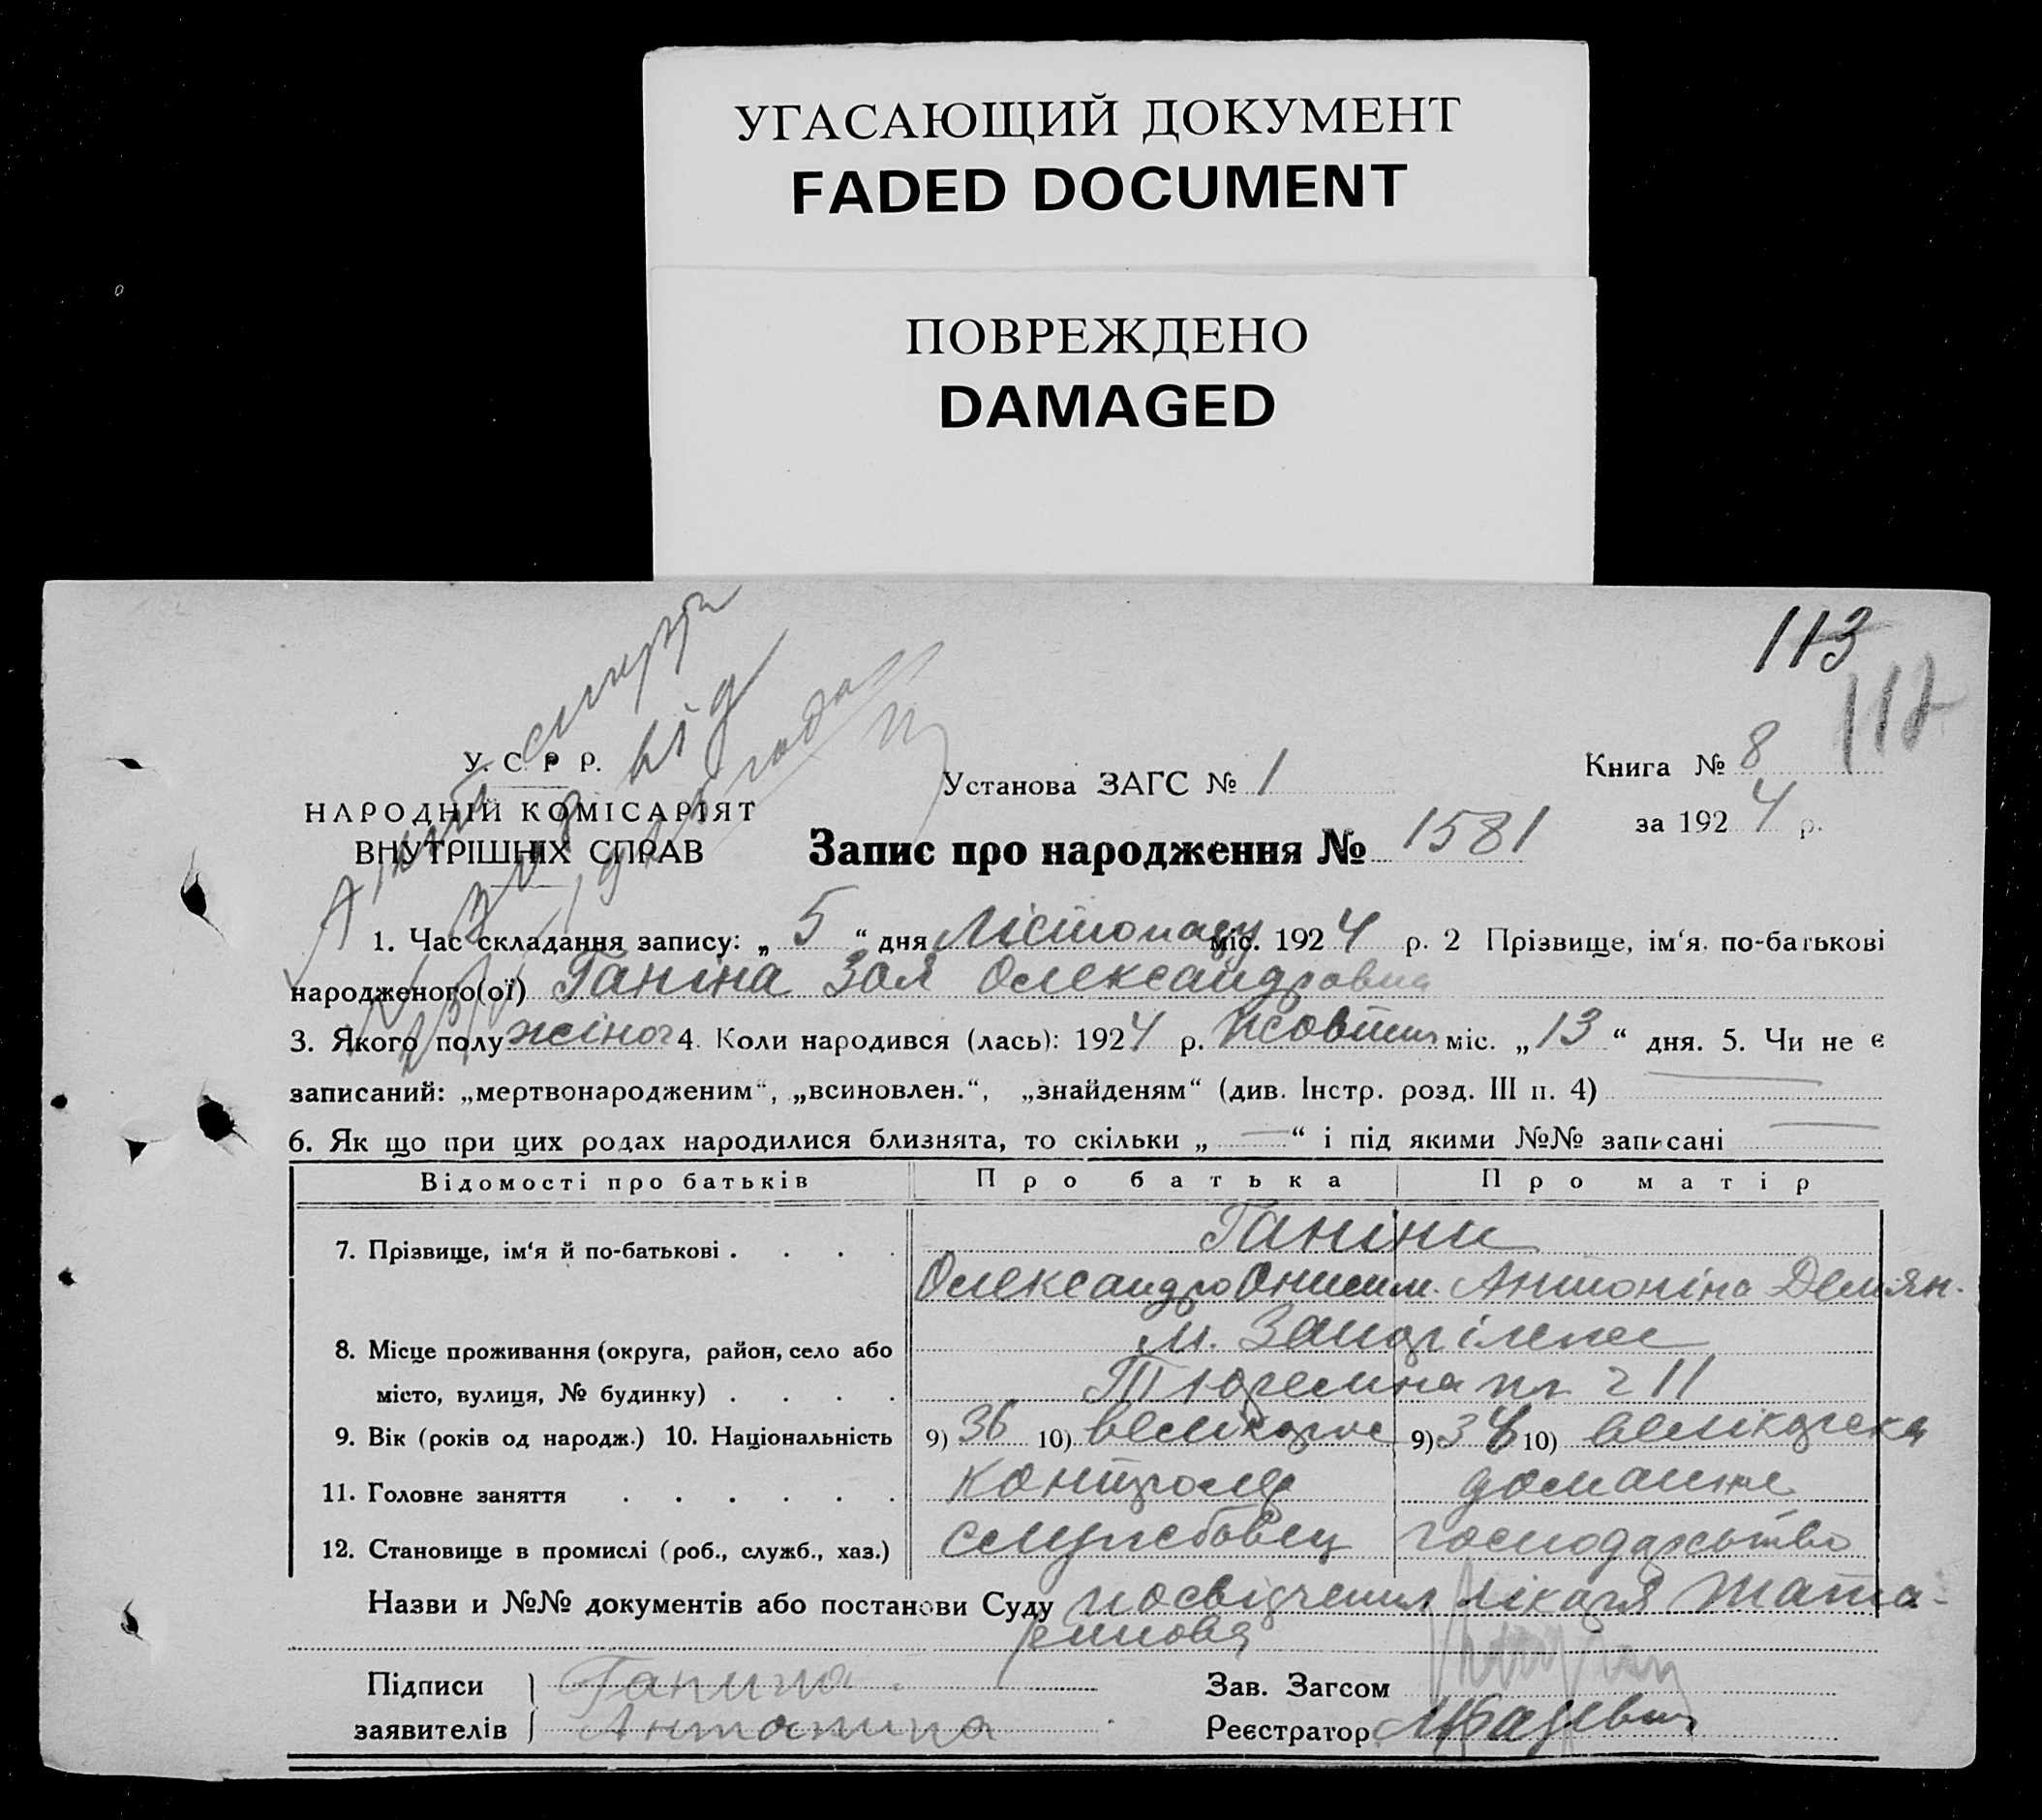 УГАСАЮЩИЙ ДОКУМЕНТ
FADED DOCUMENT
ПОВРЕЖДЕНО
DAMAGED
113
112
У. С. Р. Р.
НАРОДНІЙ КОМІСАРІЯТ
ВНУТРІШНІХ СПРАВ
Установа ЗАГС № 1
Книга № 8
за 1924 р.
Запис про народження № 1581
1. Час складання запису: „ 5 “ дня Лістопаду міс. 1924 р. 2 Прізвище, ім‘я. по-батькові
народженого(ої) Ганіна Зоя Олександровна
3. Якого полу жіноч 4. Коли народився (лась): 1924 р. Жовтня міс. „ 13 “ дня. 5. Чи не є
записаний: „мертвонародженим“, „всиновлен.“, „знайденям“ (див. Інстр. розд. III п. 4)
6. Як що при цих родах народилися близнята, то скільки „ — “ і під якими №№ записані —
Відомості про батьків Про батька Про матір
7. Прізвище, ім‘я й по-батькові . . . . Ганіни
Олександр Онисим. Антоніна Демян.
8. Місце проживання (округа, район, село або
місто, вулиця, № будинку) . . . . Тюремна 11
9. Вік (років од народж.) 10. Національність 9) 36 10) великорос 9) 34 10) великороска
11. Головне заняття . . . . . . контролер домашнє
12. Становище в промислі (роб., служб., хаз.) службовец господарство
Назви и №№ документів або постанови Суду посвідчення лікаря
Підписи
заявителів
Ганина
Антонина
Зав. Загсом
Реєстратор